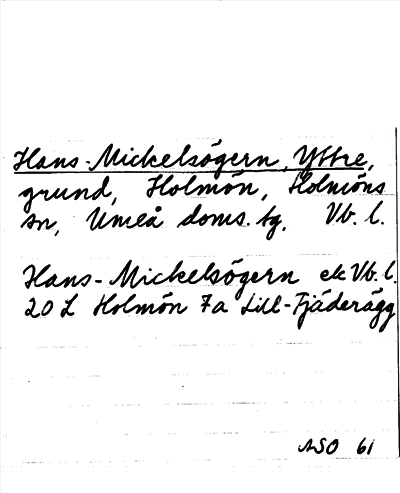 Hans-Mickelsögern, Yttre,
grund, Holmön, Holmöns
sn, Umeå doms. tg, Vb. l.
Hans-Mickelsögern ek Vb. l.
20 L Holmön 7a Lill-Fjäderägg
ASO 61